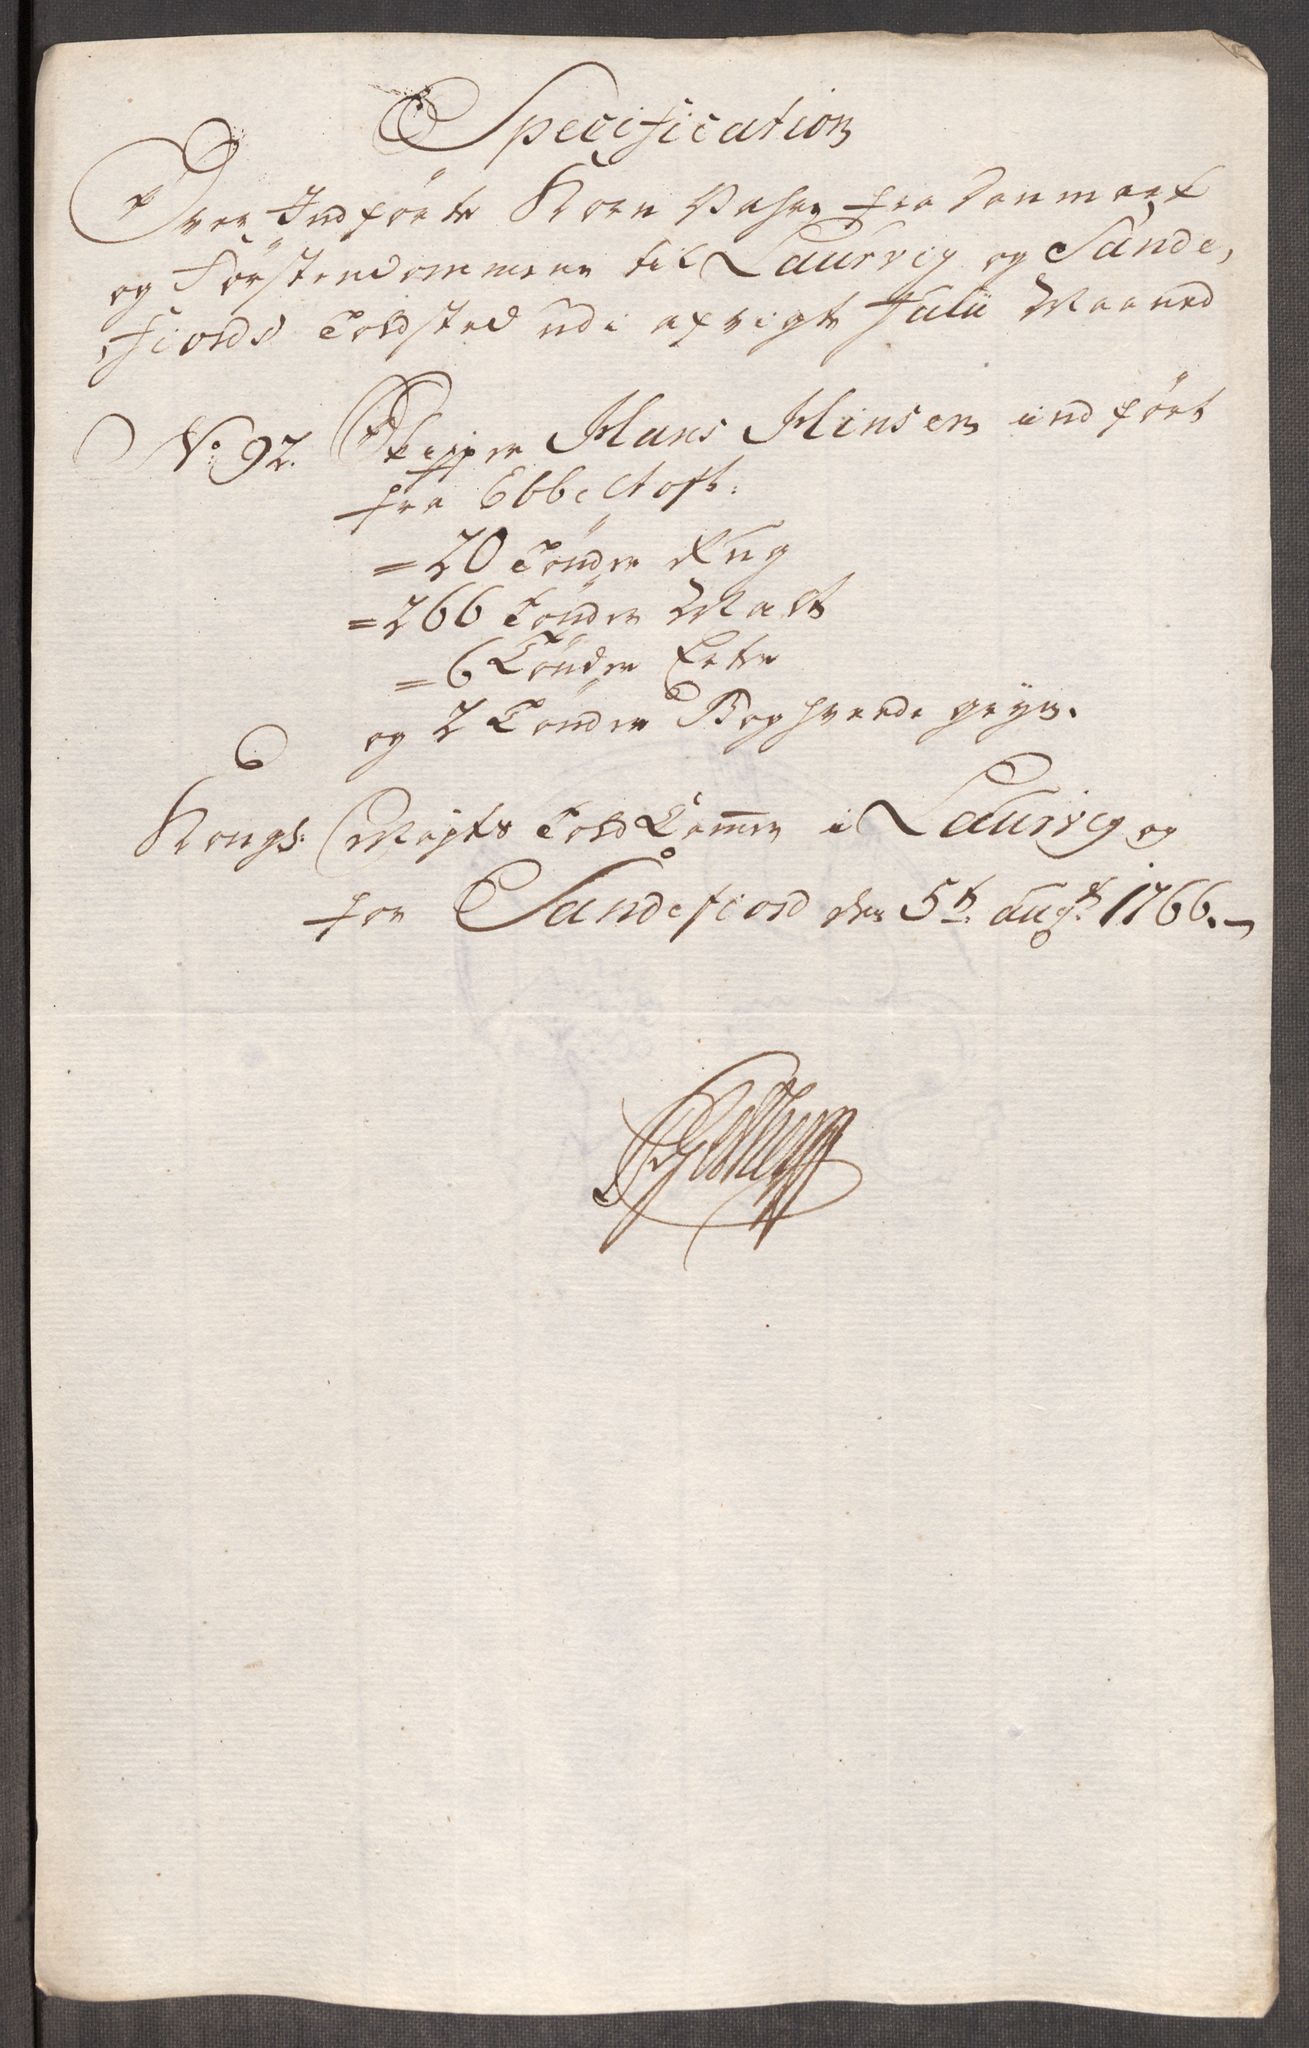 Specification
Over Indförte Korn Vahre fra Danmark
og Förstendommene til Laurvig og Sande,
fiords Toldsted udi afvigte Julii Maaned
No. 92. Skipper Hans Hinsen indfört
fra Ebbeltoft:
= 20 Tönder Rug
= 266 Tönder Malt
= 6 Tönder Erter
og 2 Tönder Boghvede gryn.
Kongs: Mayts Told Cammer i Laurvig og
for Sandefiord den 5te augti 1766.